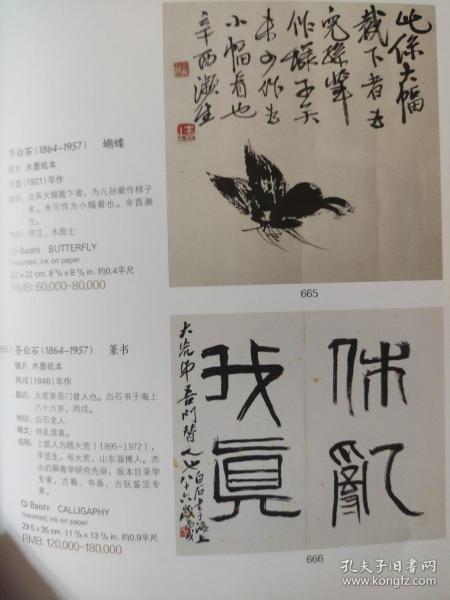 此係大幅
裁下者为
兒孫輩
作樣子矣
未可作为
小幅看也
辛酉瀕生
齐白石(1864-1957) 蝴蝶
镜片 水墨纸本
辛酉(1921)年作
题识:此系大幅裁下者,为儿孙辈作样子
矣,未可作为小幅看也。辛酉濒
生。
木居士
Qi Baishi BUTTERFLY
mounted; ink on paper
22×22 cm. 8 5/8×8 5/8 in. 约0.4平尺
RMB: 60,000-80,000
665
齐白石(1864-1957) 篆书
镜片 水墨纸本
丙戌(1946)年作
题识:大荒弟吾门替人也。白石书于海上
八十六岁。丙戌。
钤印:白石老人
释文:休乱我真。
说明:上款人为路大荒(1895-1972),
字笠生,号大荒,山东淄博人。杰
出的聊斋学研究先驱,版本目录学
专家,古籍、书画、古玩鉴定专
家。
Qi Baishi CALLIGAPHY
mounted; ink on paper
29.5×35 cm. 11 5/8×13 3/4 in. 约0.9平尺
RMB: 120,000-180,000
休亂
我真
大荒弟吾门替人也
白石書于海上
八十六歲丙戌
666
孔夫子旧书网